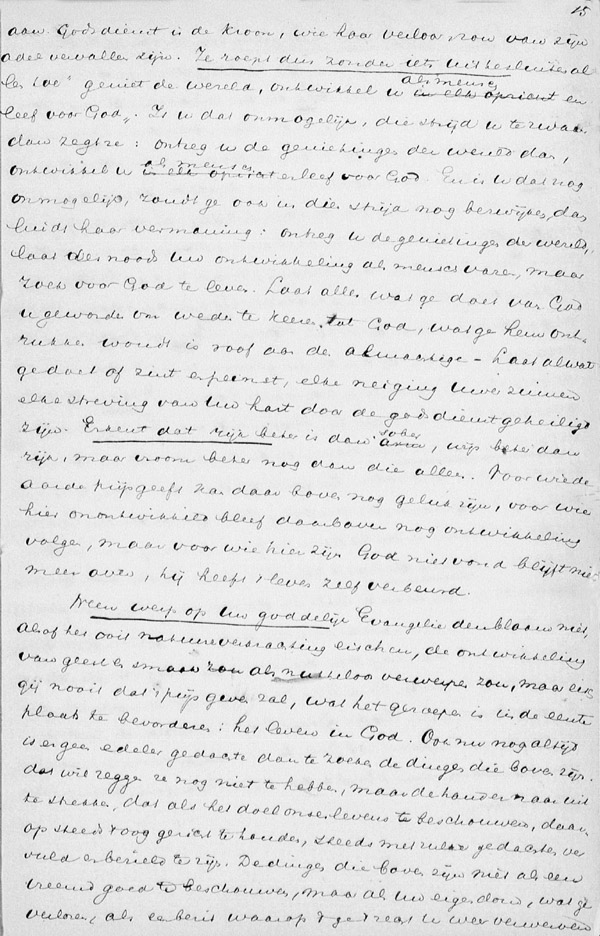 15
aan. Godsdienst is de kroon, wie haar verloor zou van zijn
adel vervallen zijn. Ze roept dus zonder iets uit te sluiten al
len toe „geniet de wereld, ontwikkel u als mensch in elk opzicht en
leef voor God„. Is u dat onmogelijk, die strijd u te zwaar
dan zegt ze: ontzeg u de genietingen der wereld dan,
ontwikkel u als mensch in elk opzicht en leef voor God. En is u dat nog
onmogelijk, zoudt ge ook in die strijd nog bezwijken, dan
luidt haar vermaning: ontzeg u de genietingen der wereld,
laat des noods uw ontwikkeling als mensch varen, maar
zoek voor God te leven. Laat alles wat ge doet van God
u geworden om weder te keeren tot God, wat ge hem ont-
rukken woudt is roof aan de almachtige – Laat al wat
ge doet of zint en peinst, elke neiging uwer zinnen
elke streving van uw hart door de godsdienst geheiligd
zijn. Erkent dat rijk beter is dan sober arm, wijs beter dan
rijk, maar vroom beter nog dan die allen. Voor wie de
aarde prijs geeft kan daar boven nog geluk zijn, voor wie
hier onontwikkeld bleef daarboven nog ontwikkeling
volgen, maar voor wie hier zijn God niet vond blijft niets
meer over, hij heeft 't leven zelf verbeurd.
Neen werp op uw goddelijk Evangelie den blaam niet,
alsof het ooit natuurverkrachting eischen, de ontwikkeling
van geest en smaak zou als nutteloos verwerpen zou, maar eisch
gij nooit dat 't prijs geven zal, wat het geroepen is in de eerste
plaats te bevorderen: het leven in God. Ook nu nog altijd
is er geen edeler gedachte dan te zoeken de dingen die boven zijn.
dat wil zeggen ze nog niet te hebben, maar de handen naar uit
te strekken, dat als het doel onzes levens te beschouwen, daar
op steeds 't oog gericht te houden, steeds met zulke gedachten ver
vuld en bezield te zijn. De dingen die boven zijn niet als een
vreemd goed te beschouwen, maar als uw eigendom, wat ge
verloren, als een bezit waarop 't ge 't recht u weer verwerven